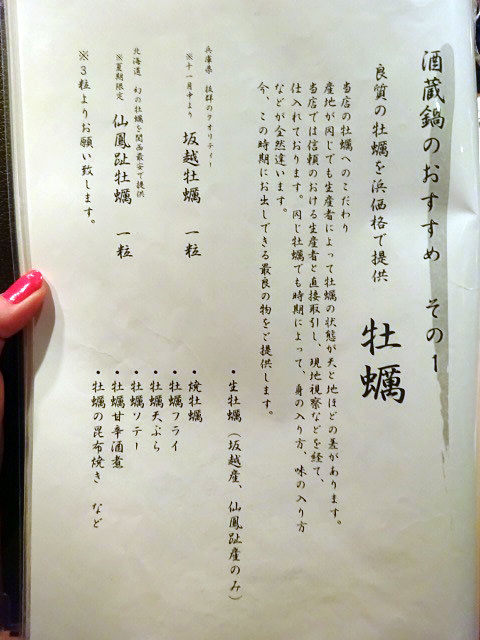 酒蔵鍋のおすすめ その1
良質の牡蠣を浜価格で提供 牡蠣
当店の牡蠣へのこだわり
産地が同じでも生産者によって牡蠣の状態が天と地ほどの差があります。
当店では信頼のおける生産者と直接取引し、現地視察などを経て、
仕入れております。同じ牡蠣でも時期によって、身の入り方、味の入り方
などが全然違います。
今、この時期にお出しできる最良の物をご提供します。
兵庫県 抜群のクオリティー
※十一月中より 坂越牡蠣 一粒
北海道 幻の牡蠣を関西最安で提供
※夏期限定 仙鳳趾牡蠣 一粒
※3粒よりお願い致します。
・生牡蠣(坂越産、仙鳳趾産のみ)
・焼牡蠣
・牡蠣フライ
・牡蠣天ぷら
・牡蠣ソテー
・牡蠣甘辛酒煮
・牡蠣の昆布焼き など